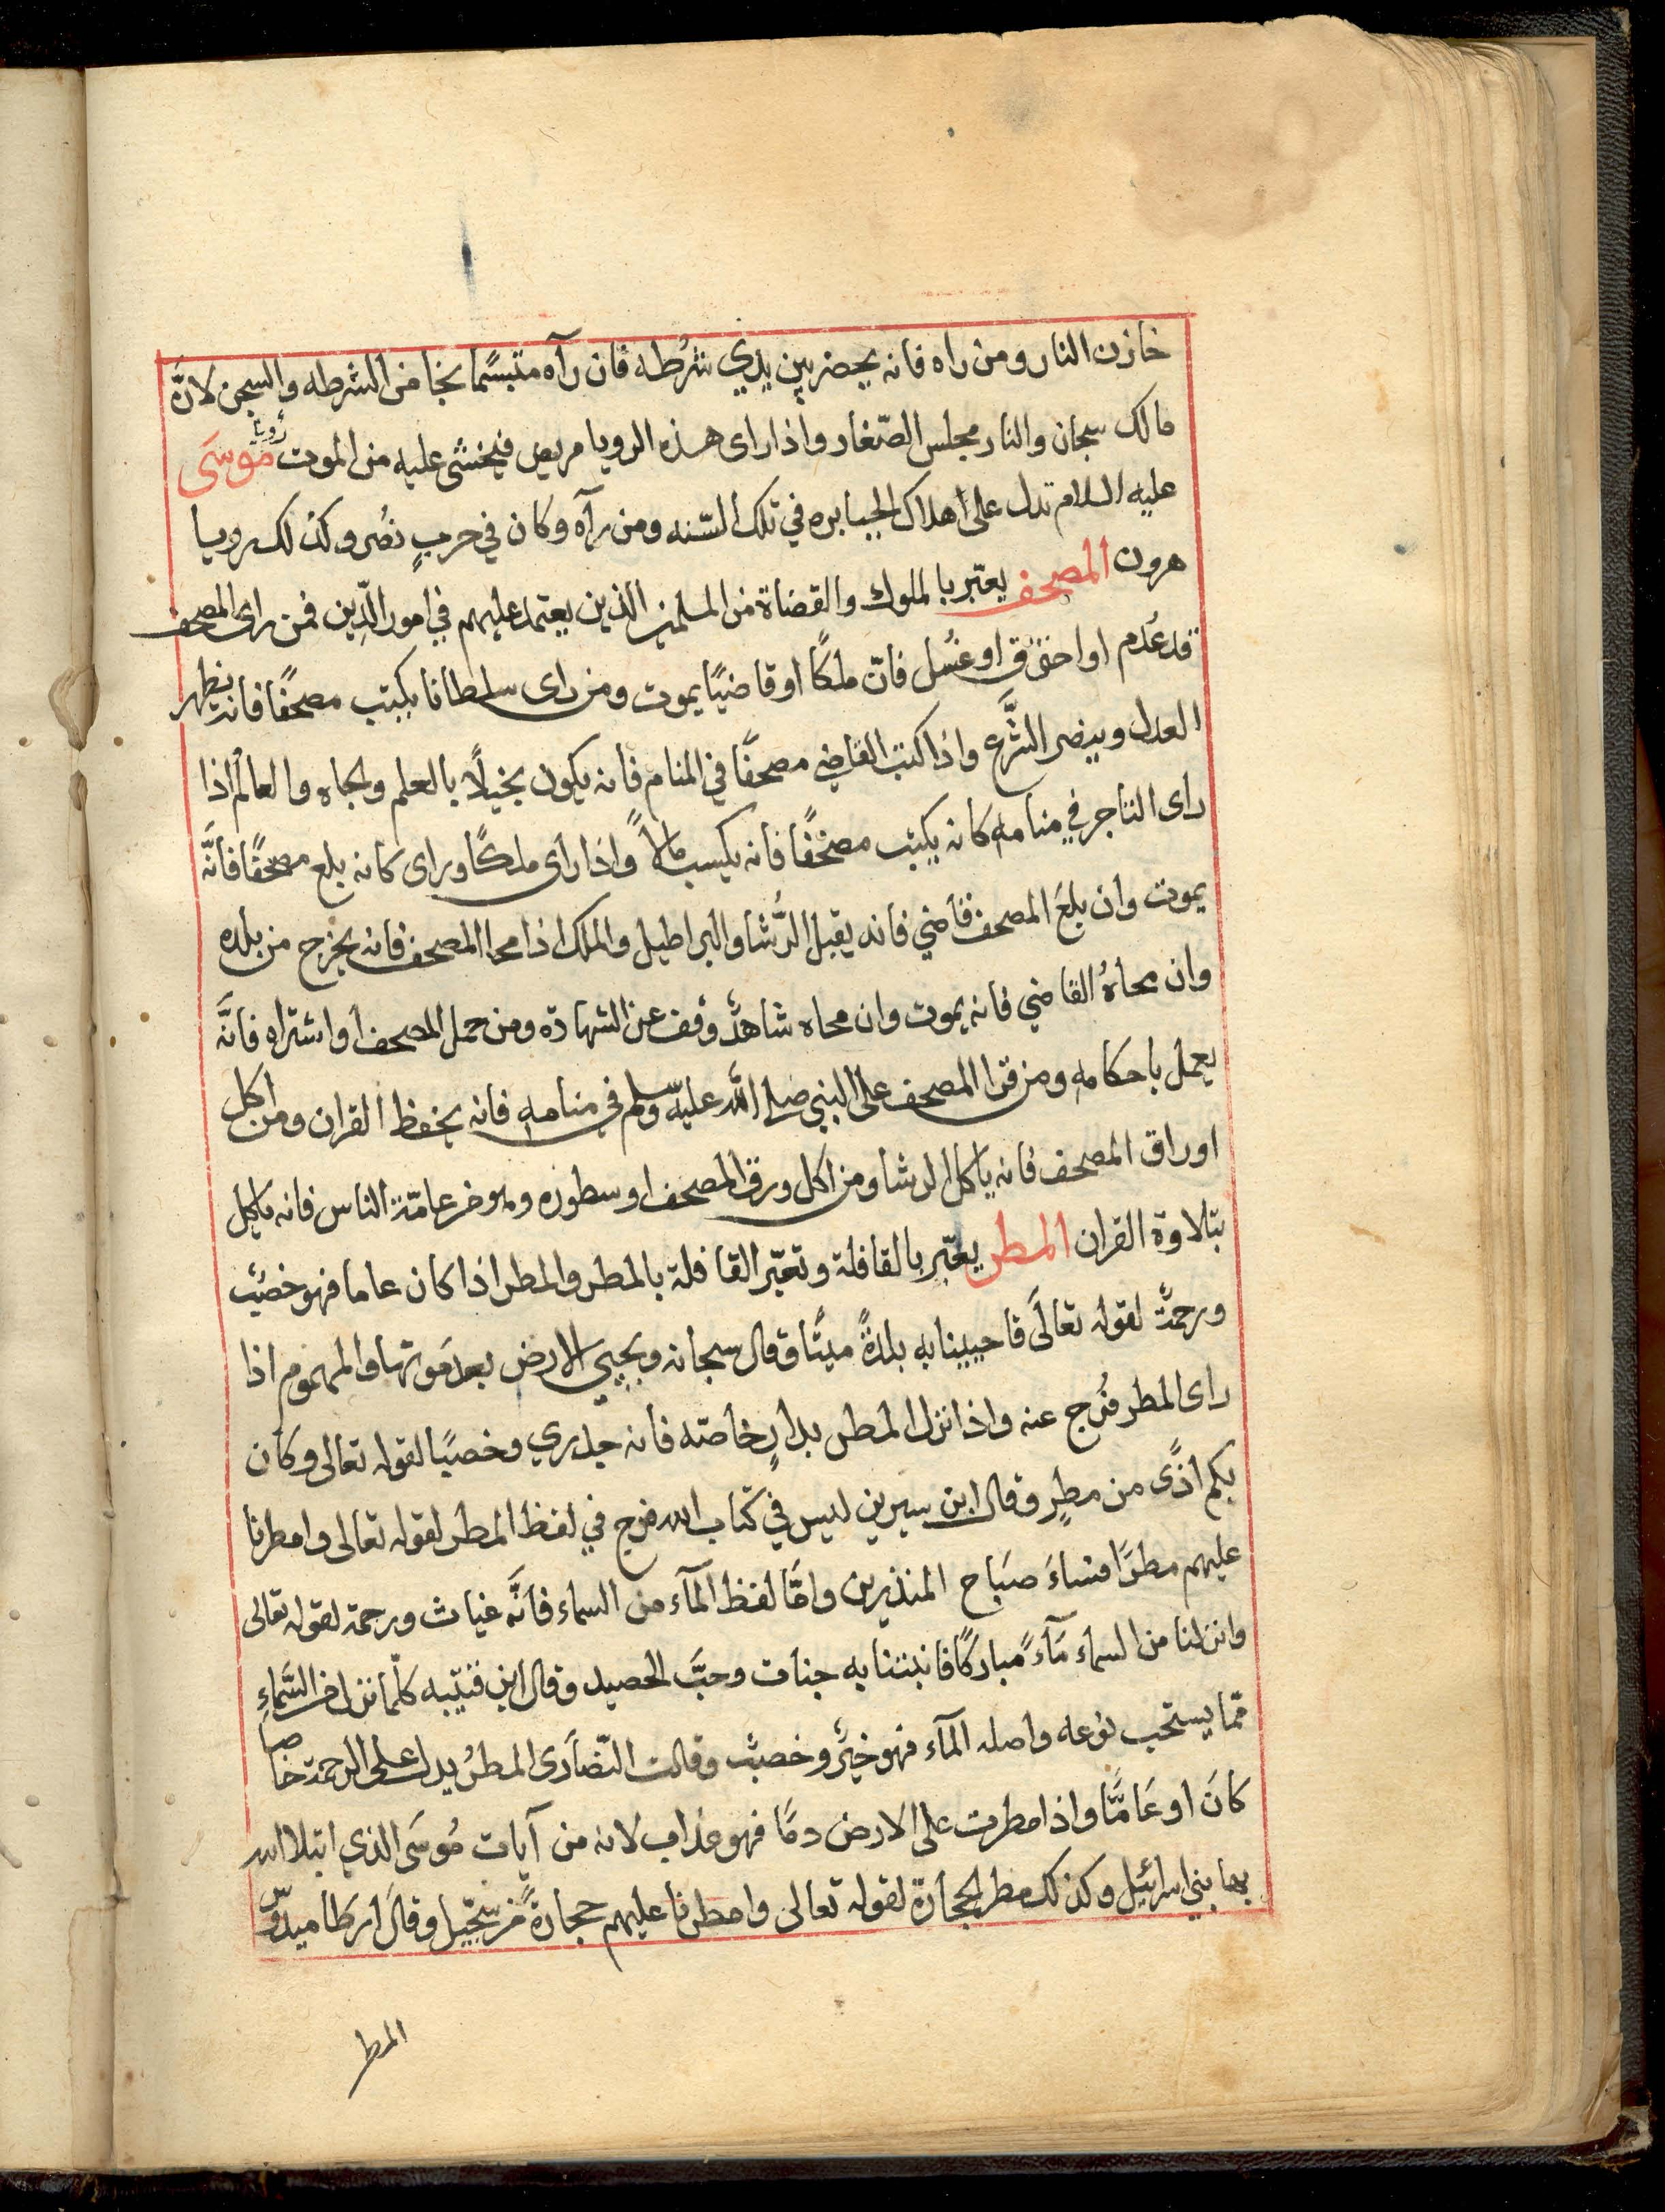 خازن النار ومن راه فانه يحضر بين يدي شُرطه فان رآه متبسًما نجا من الشرطه والسجن لانَّ
مالك سجان والنار مجلس الصّغار واذا راى هذه الرويا مريض فيخشى عليه من الموت رؤيا موسَى
عليه السلام تدل على اهلاك الجبابره في تلك السّنه ومن رآه وكان في حربٍ نصُر وكذلك رويا
هرون المصحف يعتبر بالملوك والقضاة من المسلمين الذين يعتمد عليهم في امور الدِّين فمن راى المصحف
قد عُدم او احترق او غسُل فانّ ملكًا او قاضيًا يموت ومن راى سلطانا يكتب مصحفًا فانه يظهر
العدل وينصر الشَّرع واذا كتب القاضي مصحفًا في المنام فانه يكون بخيلاً بالعلم والجاه والعالم اذا
راى التاجر في منامه كانه يكتب مصحفًا فانه يكسب مالاً واذا راى ملكًا وراى كانه بلع مصحفًا فانَّه
يموت وان بلعَ المصحف قاضي فانه يقبل الرُّشا والبراطيل والملك اذا محا المصحف فانه يخرج من بلده
وان محاهُ القاضي فانه يموت وان محاه شاهدٌ وقف عن الشهادة ومن حمل المصحف او اشتراه فانَّه
يعمل باحكامه ومن قرا المصحف على النبي صلى الله عليه وسلم في منامه فانه يحفظ القران ومن اكل
اوراق المصحف فانه ياكل الرشا ومن اكل ورق المصحف او سطوره وهو من عامّة الناس فانه ياكل
بتلاوة القران المطر يعتبر بالقافلة وتعتبر القافلة بالمطر والمطر اذا كان عاما فهو خصبٌ
ورحمةٌ لقوله تعالَى فاحيينا به بلدةً ميتًا وقال سبحانه ويحيي الارض بعد مَوتها والمهموم اذا
راى المطر فُرج عنه واذا نزل المطر بدارٍ خاصّه فانه جدري وخصبًا لقوله تعالى وكان
بكم اذًى من مطرٍ وقال ابن سيرين ليس في كتاب الله فرج في لفظ المطر لقوله تعالى وامطرنا
عليهم مطرًا فساءَ صَباح المنذرين وامَّا لفظ المآء من السماء فانَّه غياث ورحمة لقوله تعالى
وانزلنا من السماء مَآءً مباركًا فانبتنا به جنات وحبَّ الحصيد وقال ابن قتيبه كلّما نزل من السَّماءِ
ممّا يستحب نوعه واصله المآء فهو خيرٌ وخصبٌ وقالت النّصارَى المطرُ يدل على الرحمة خاصا
كانَ او عَامًّا واذا مطرت على الارض دمًا فهو عذاب لانه من آيات مُوسَى الذي ابتلا الله
بها بني اسرائيل وكذلك مطر الحجارة لقوله تعالى وامطرنا عليهم حجارةً من سجّيل وقالَ ارطاميدوّس
المطر